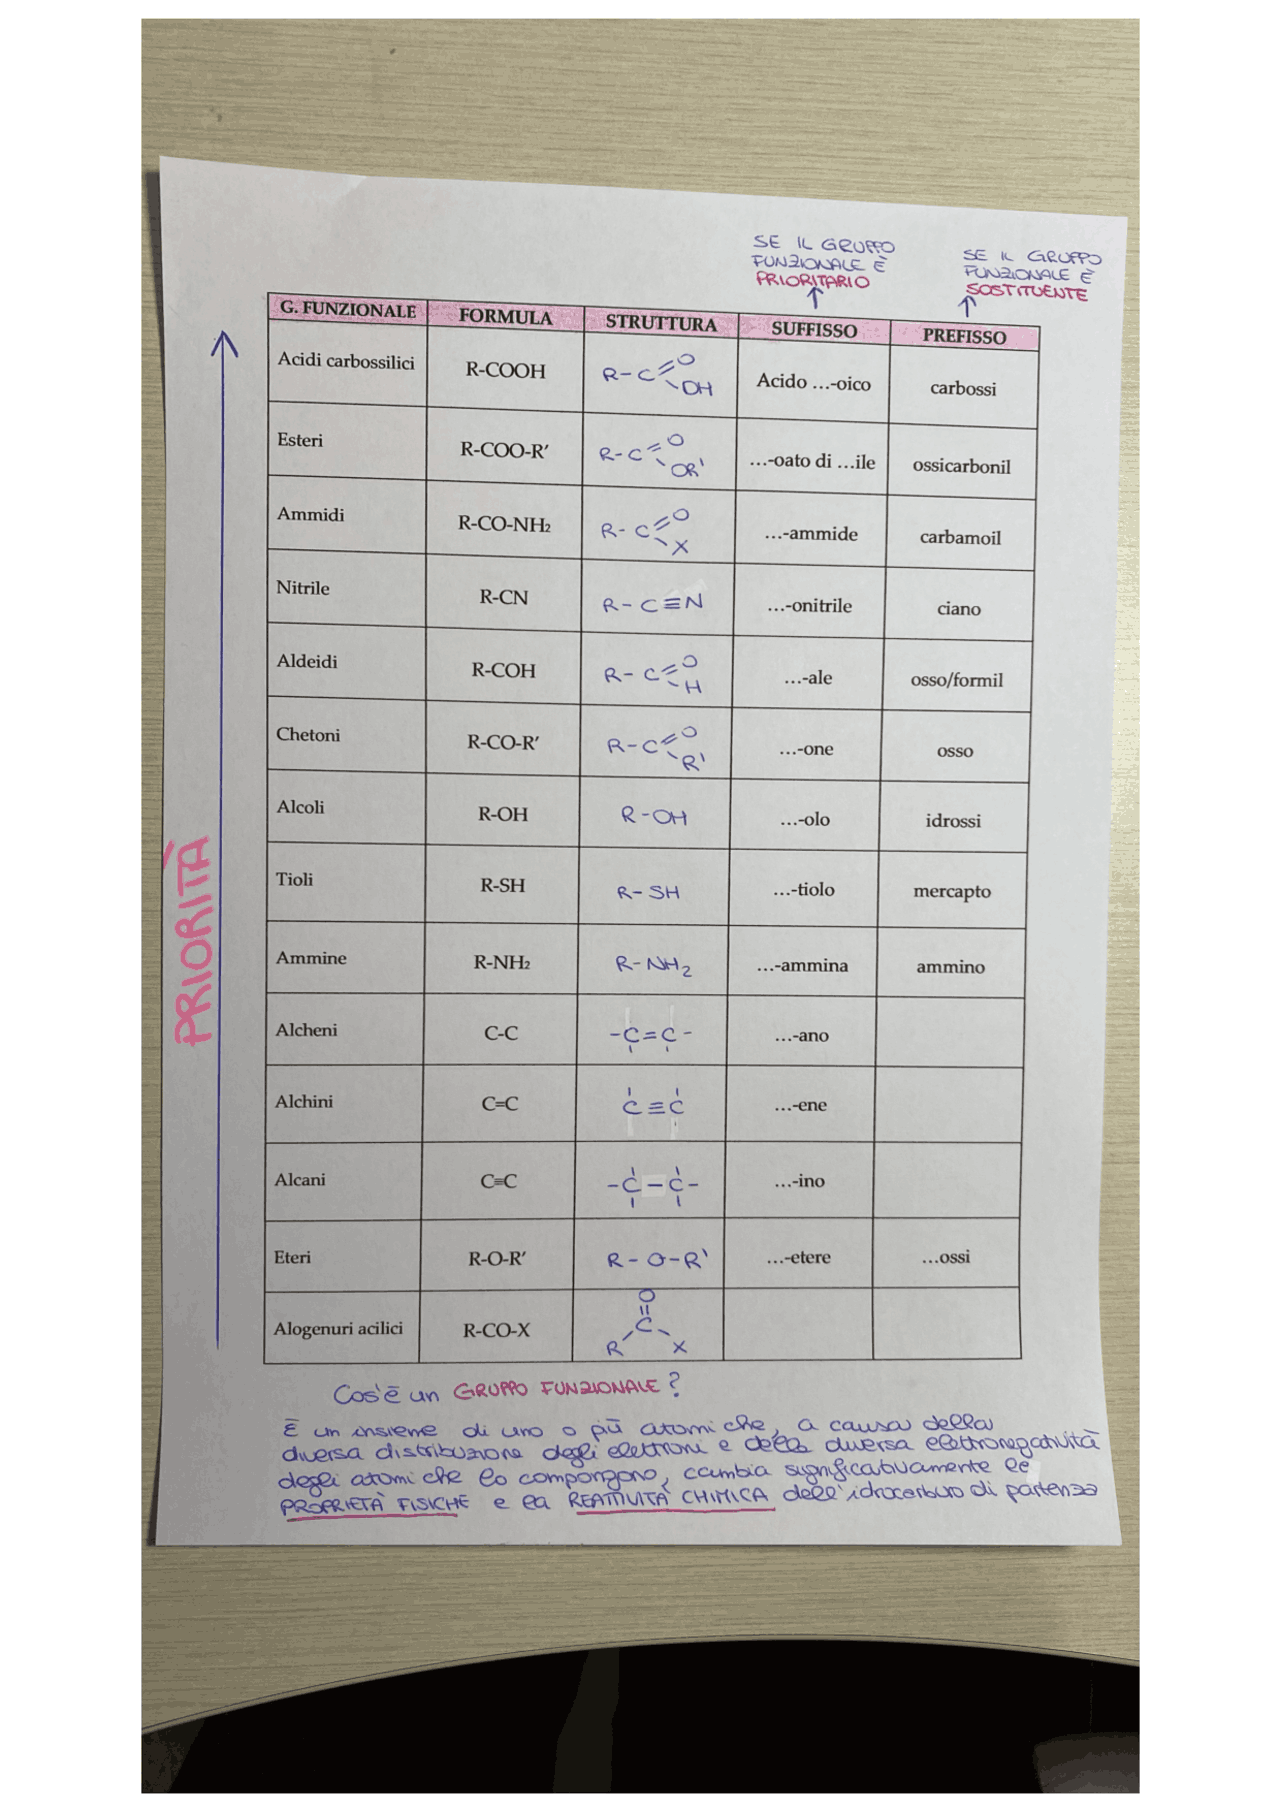 SE IL GRUPPO
FUNZIONALE È
PRIORITARIO
SE IL GRUPPO
FUNZIONALE È
SOSTITUENTE
G. FUNZIONALE FORMULA STRUTTURA SUFFISSO PREFISSO
Acidi carbossilici R-COOH R-C=O -OH Acido ...-oico carbossi
Esteri R-COO-R' R-C=O -OR' ...-oato di ...ile ossicarbonil
Ammidi R-CO-NH₂ R-C=O -X ...-ammide carbamoil
Nitrile R-CN R-C≡N ...-onitrile ciano
Aldeidi R-COH R-C=O -H ...-ale osso/formil
Chetoni R-CO-R' R-C=O -R' ...-one osso
Alcoli R-OH R-OH ...-olo idrossi
Tioli R-SH R-SH ...-tiolo mercapto
Ammine R-NH₂ R-NH₂ ...-ammina ammino
Alcheni C-C -C=C- ...-ano
Alchini C=C C≡C ...-ene
Alcani C≡C -C-C- ...-ino
Eteri R-O-R' R-O-R' ...-etere ...ossi
Alogenuri acilici R-CO-X O=C R X
PRIORITÀ
Cos'è un GRUPPO FUNZIONALE?
È un insieme di uno o più atomi che, a causa della
diversa distribuzione degli elettroni e della diversa elettronegatività
degli atomi che lo compongono, cambia significativamente le
PROPRIETÀ FISICHE e la REATTIVITÀ CHIMICA dell'idrocarburo di partenza